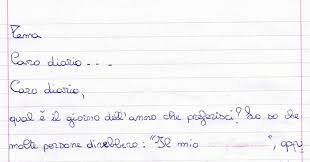 Tema
Caro diario - - -
Caro diario,
qual è il giorno dell'anno che preferisci? Io so che
molte persone direbbero: "Il mio ", opp